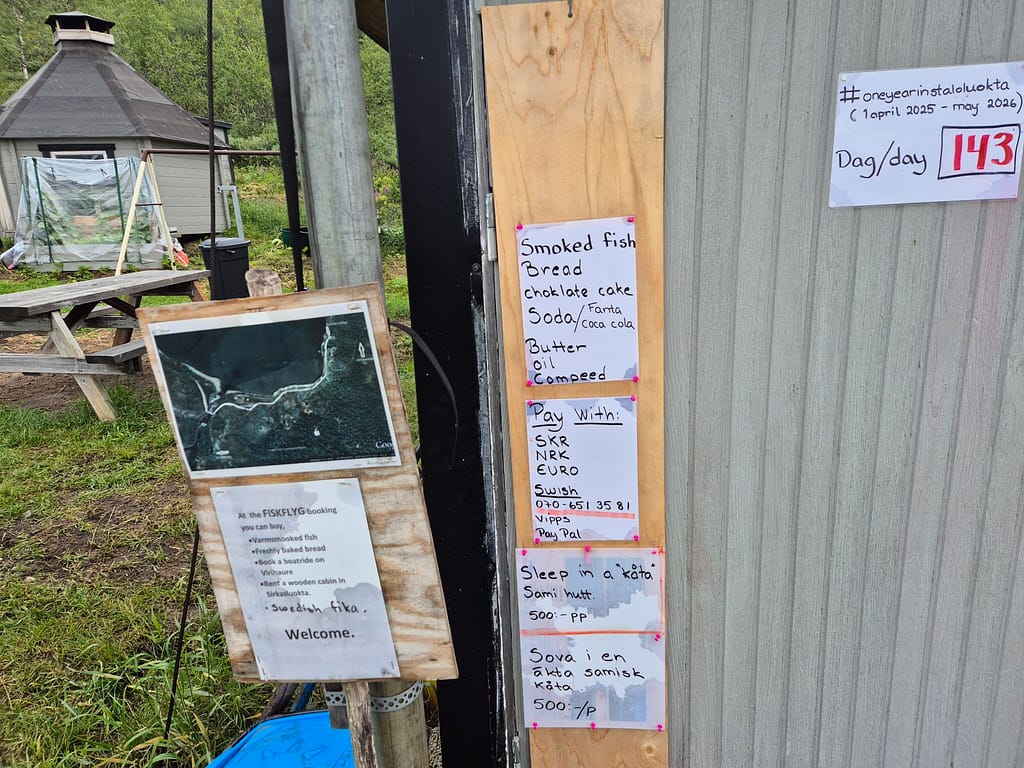 At the FISKFLYG booking
you can buy,
•Varmsmooked fish
•Freshly baked bread
•Book a boatride on
Virihaure
•Rent a wooden cabin in
Sirkasluokta.
• Swedish fika.
Welcome.
Smoked fish
Bread
choklate cake
Soda/Fanta
coca cola
Butter
oil
Compeed
Pay With:
SKR
NRK
EURO
Swish
070-651 35 81
Vipps
PayPal
Sleep in a "kåta"
Sami hutt.
500:- pp
Sova i en
äkta samisk
kåta
500:-/p
#oneyearinstaloluokta
(1 april 2025 - may 2026)
Dag/day 143